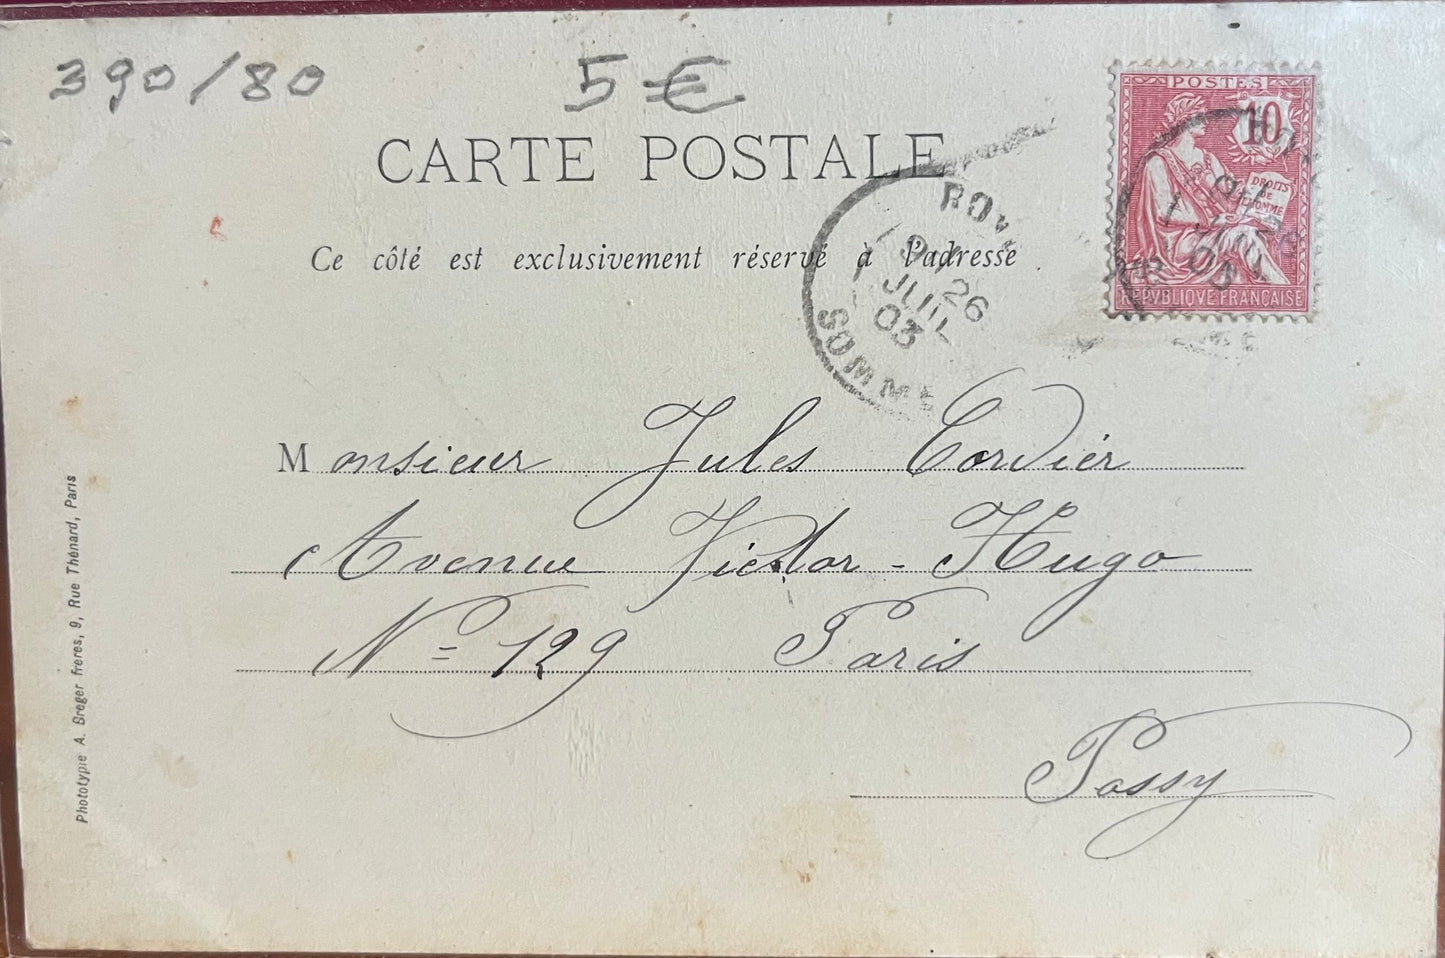 390/80 5€
CARTE POSTALE
Ce côté est exclusivement réservé à l'adresse
POSTES
10
DROITS
DE
L'HOMME
REPVBLIQVE FRANÇAISE
26
JUIL
03
SOMME
Monsieur Jules Cordier
Avenue Victor-Hugo
N= 129 Paris
Passy
Phototypie A. Breger frères, 9, Rue Thénard, Paris